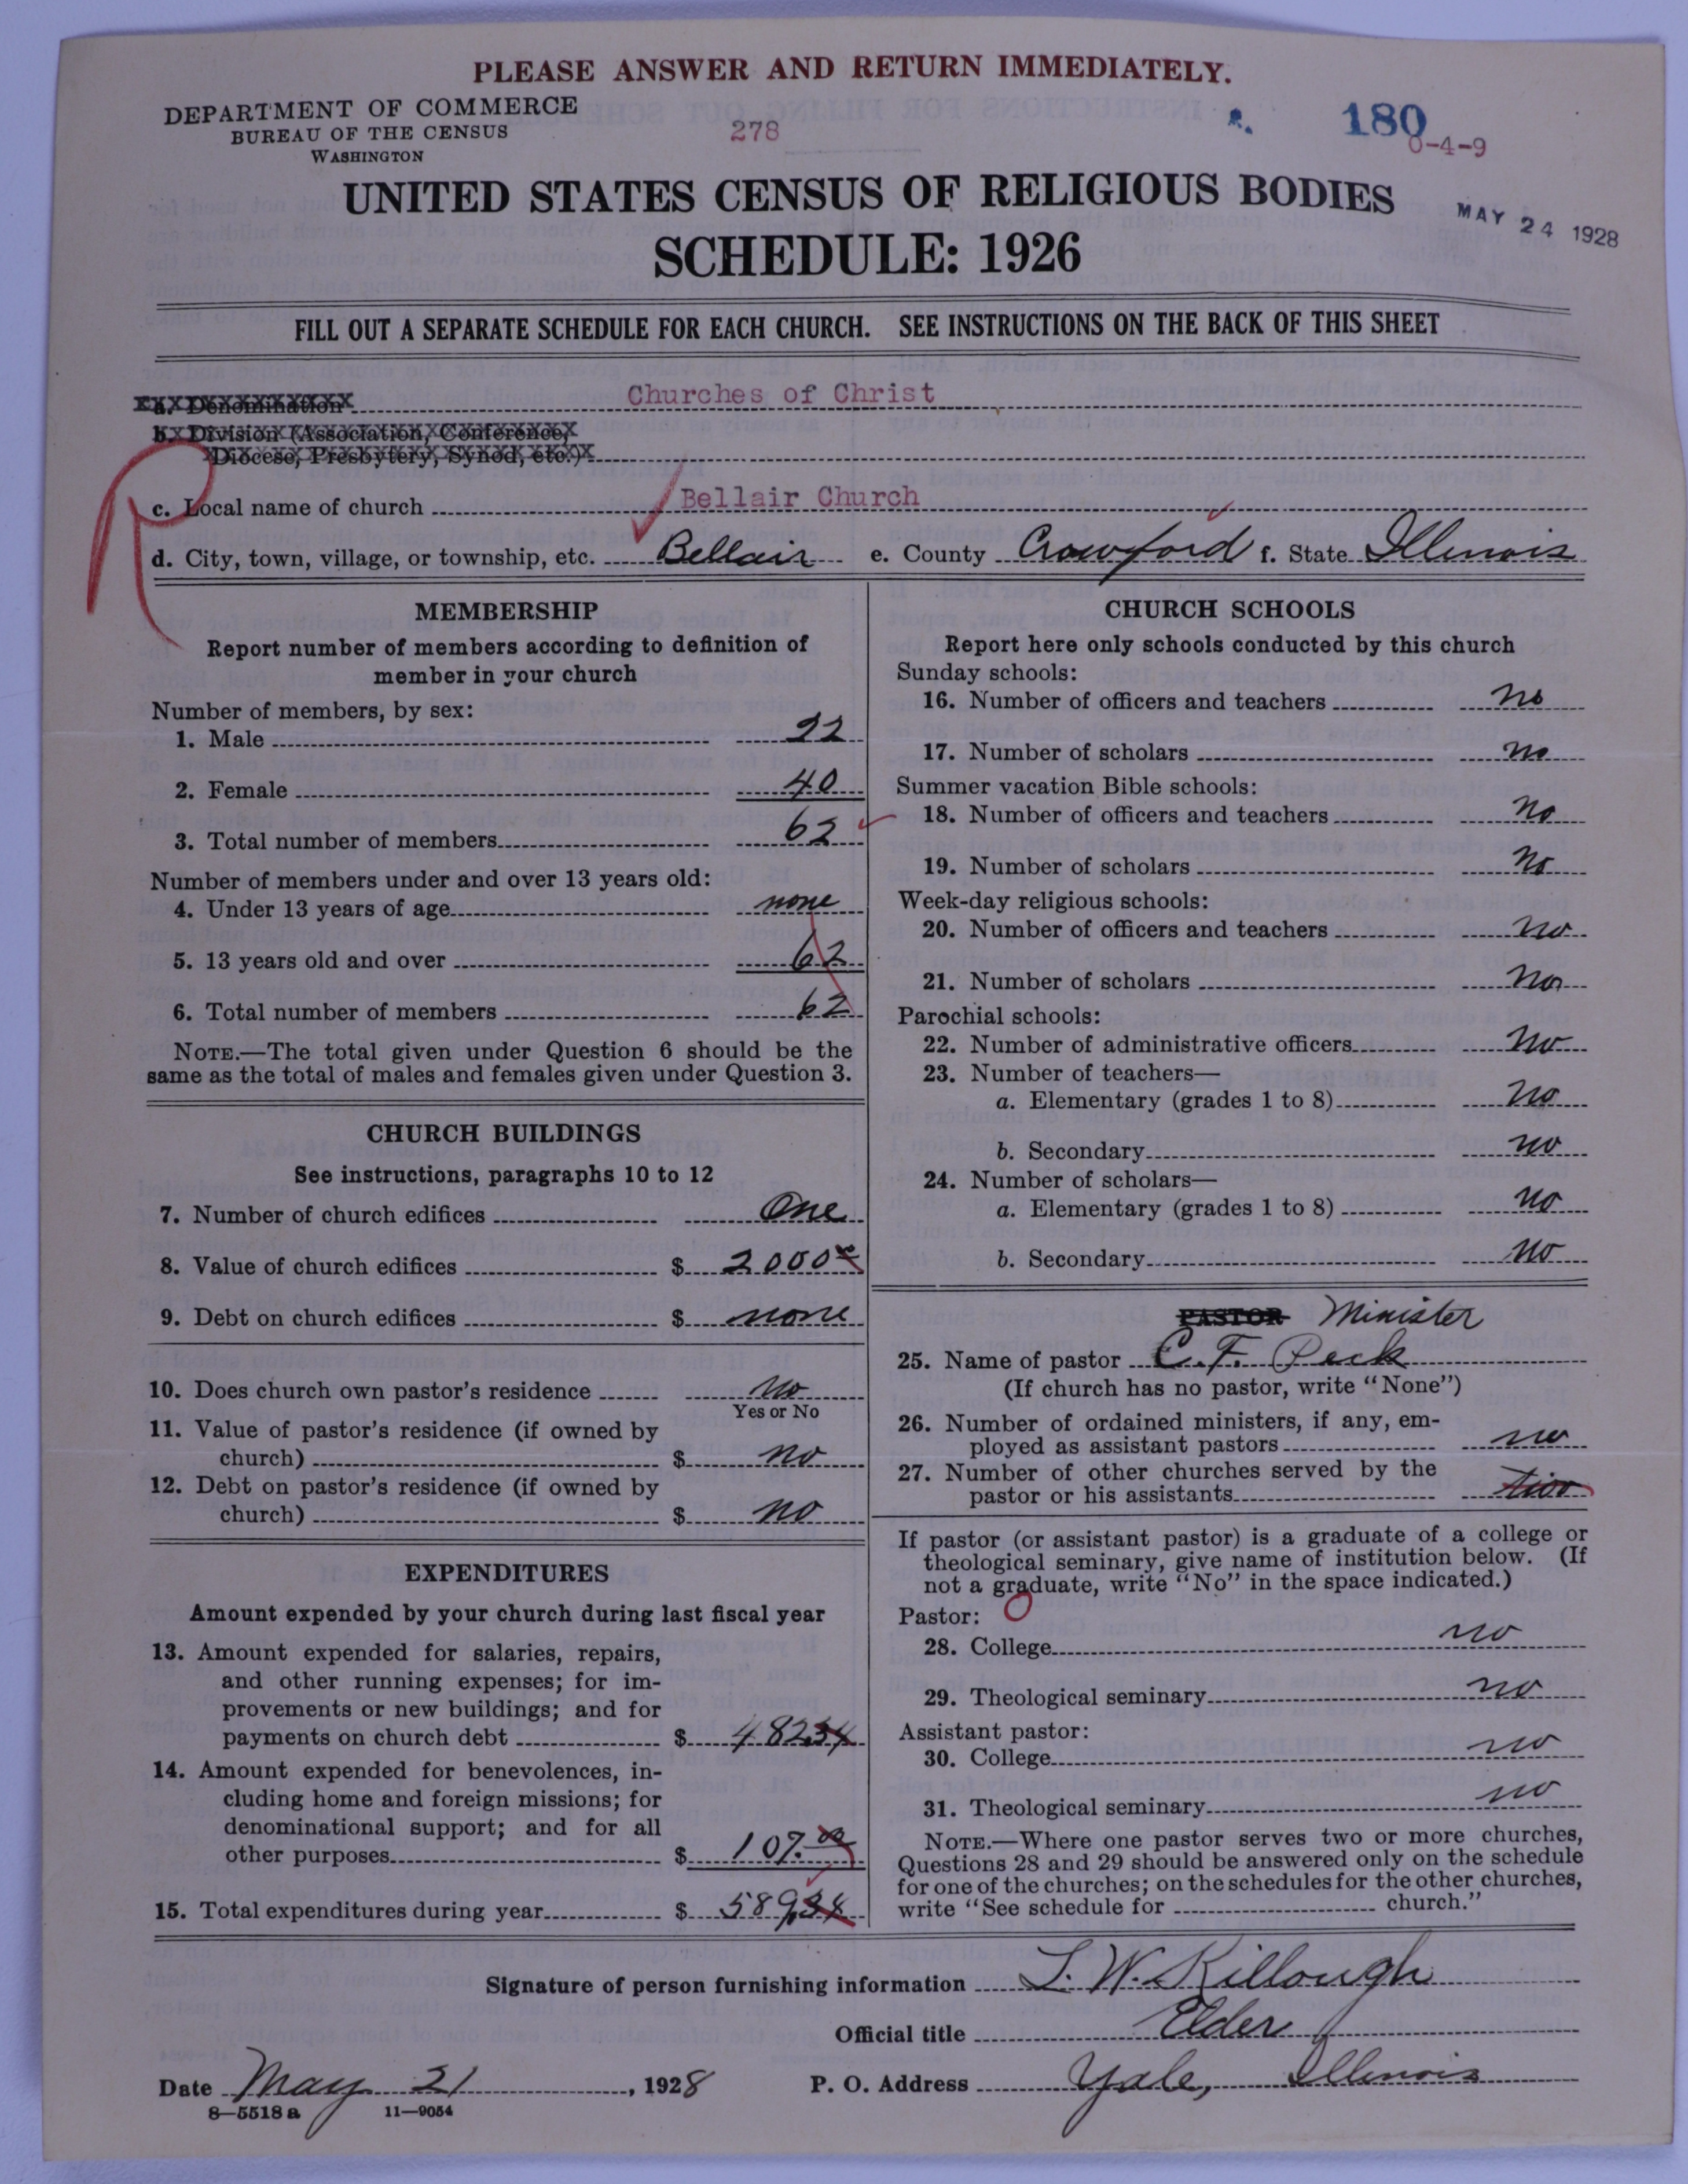 PLEASE ANSWER AND RETURN IMMEDIATELY.
DEPARTMENT OF COMMERCE
BUREAU OF THE CENSUS
WASHINGTON
278
R. 180
0-4-9
UNITED STATES CENSUS OF RELIGIOUS BODIES
MAY 24 1928
SCHEDULE: 1926
FILL OUT A SEPARATE SCHEDULE FOR EACH CHURCH. SEE INSTRUCTIONS ON THE BACK OF THIS SHEET
a. Denomination Churches of Christ
b. Division (Association, Conference,
Diocese, Presbytery, Synod, etc.)
R
c. Local name of church Bellair Church
d. City, town, village, or township, etc. Bellair e. County Crowford f. State Illinois
MEMBERSHIP
Report number of members according to definition of
member in your church
Number of members, by sex:
1. Male 22
2. Female 40
3. Total number of members 62
Number of members under and over 13 years old:
4. Under 13 years of age none
5. 13 years old and over 62
6. Total number of members 62
NOTE.—The total given under Question 6 should be the
same as the total of males and females given under Question 3.
CHURCH BUILDINGS
See instructions, paragraphs 10 to 12
7. Number of church edifices One
8. Value of church edifices $ 2000
9. Debt on church edifices $ none
10. Does church own pastor's residence No
Yes or No
11. Value of pastor's residence (if owned by
church) $ no
12. Debt on pastor's residence (if owned by
church) $ no
EXPENDITURES
Amount expended by your church during last fiscal year
13. Amount expended for salaries, repairs,
and other running expenses; for im-
provements or new buildings; and for
payments on church debt $ 482.34
14. Amount expended for benevolences, in-
cluding home and foreign missions; for
denominational support; and for all
other purposes $ 107.00
15. Total expenditures during year $ 589.34
CHURCH SCHOOLS
Report here only schools conducted by this church
Sunday schools:
16. Number of officers and teachers no
17. Number of scholars no
Summer vacation Bible schools:
18. Number of officers and teachers no
19. Number of scholars no
Week-day religious schools:
20. Number of officers and teachers no
21. Number of scholars no
Parochial schools:
22. Number of administrative officers no
23. Number of teachers—
a. Elementary (grades 1 to 8) no
b. Secondary no
24. Number of scholars—
a. Elementary (grades 1 to 8) no
b. Secondary no
PASTOR Minister
25. Name of pastor C. F. Peck
(If church has no pastor, write "None")
26. Number of ordained ministers, if any, em-
ployed as assistant pastors no
27. Number of other churches served by the
pastor or his assistants two
If pastor (or assistant pastor) is a graduate of a college or
theological seminary, give name of institution below. (If
not a graduate, write "No" in the space indicated.)
Pastor: O
28. College no
29. Theological seminary no
Assistant pastor:
30. College no
31. Theological seminary no
NOTE.—Where one pastor serves two or more churches,
Questions 28 and 29 should be answered only on the schedule
for one of the churches; on the schedules for the other churches,
write "See schedule for church."
Signature of person furnishing information L. W. Killough
Official title Elder
Date May 21, 1928 P. O. Address Yale, Illinois
8—5518 a 11—9054